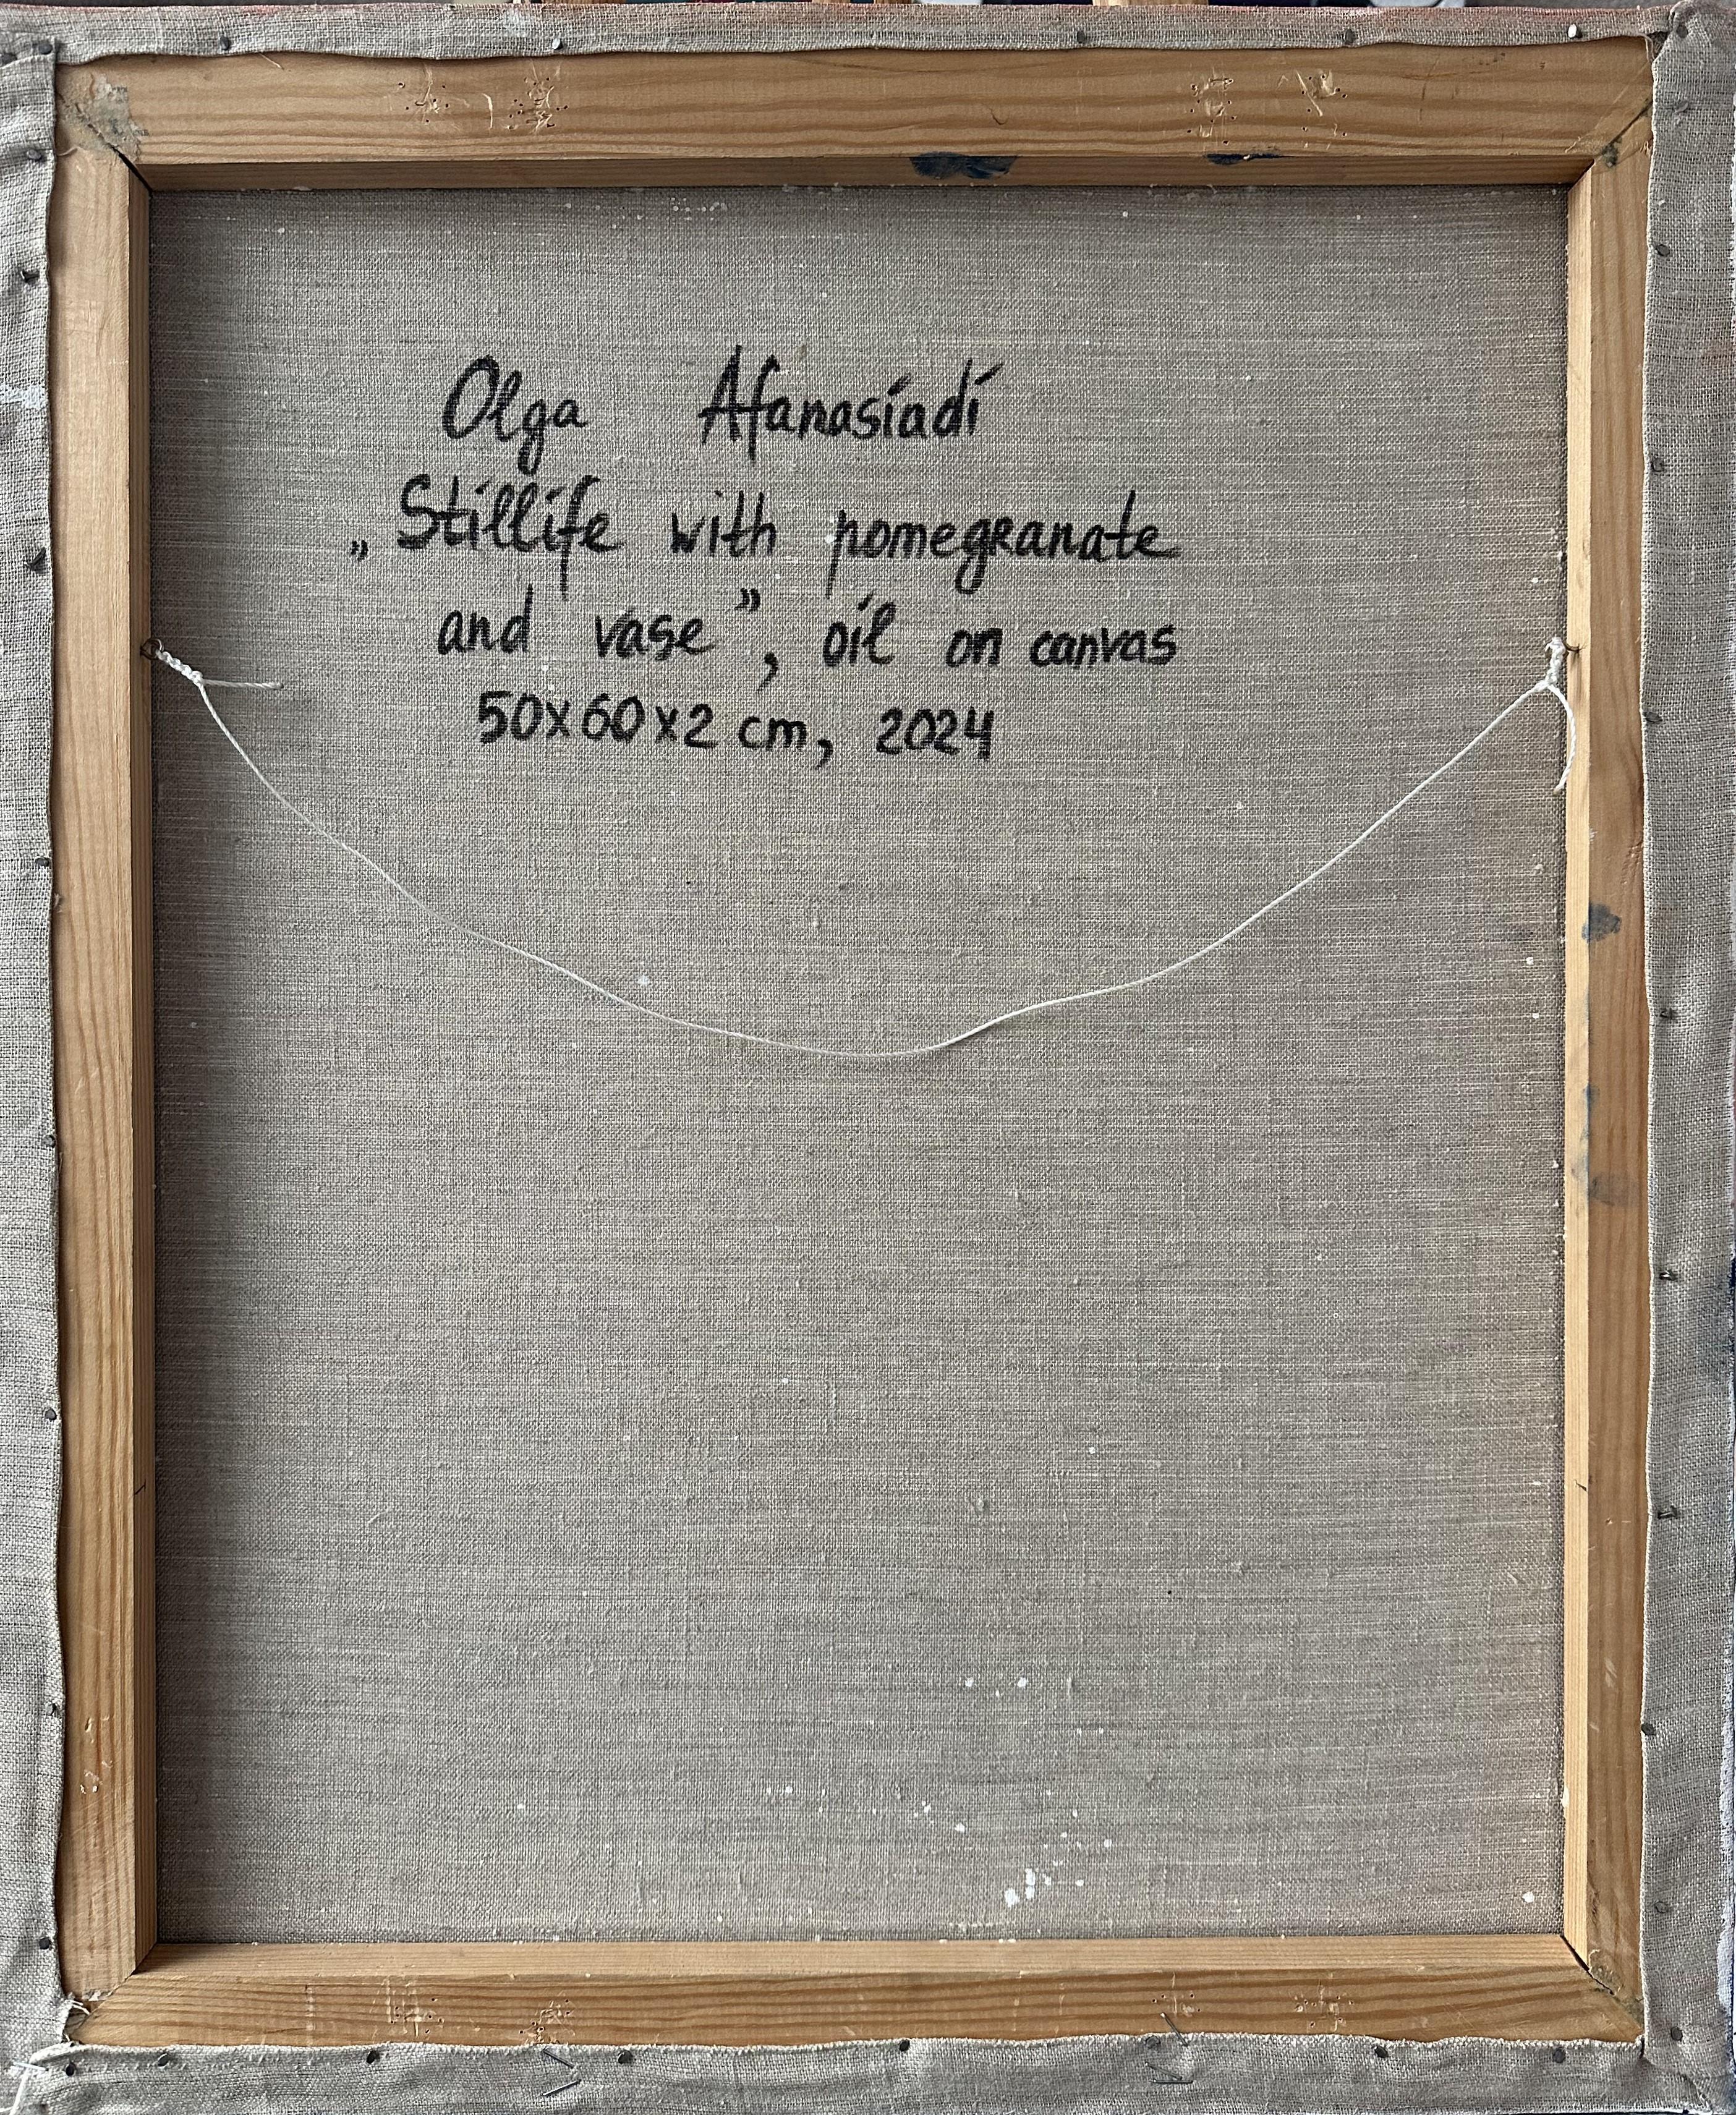 Olga Afanasiadi
„Stillife with pomegranate
and vase”, oil on canvas
50x60x2 cm, 2024